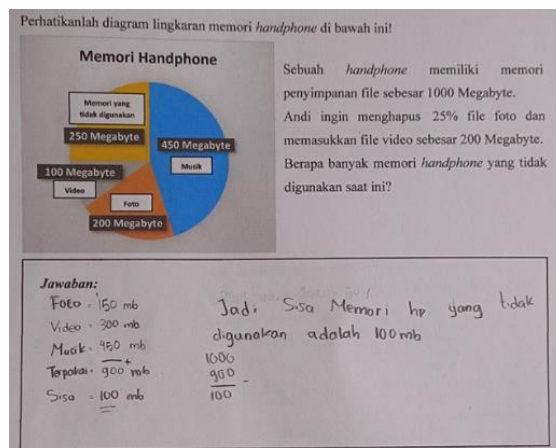 Perhatikanlah diagram lingkaran memori handphone di bawah ini!
Memori Handphone
Memori yang
tidak digunakan
250 Megabyte
450 Megabyte
Musik
100 Megabyte
Video
Foto
200 Megabyte
Sebuah handphone memiliki memori
penyimpanan file sebesar 1000 Megabyte.
Andi ingin menghapus 25% file foto dan
memasukkan file video sebesar 200 Megabyte.
Berapa banyak memori handphone yang tidak
digunakan saat ini?
Jawaban:
Foto = 150 mb
Video = 300 mb
Musik = 450 mb
+
Terpakai = 900 mb
Sisa = 100 mb
Jadi Sisa Memori hp yang tidak
digunakan adalah 100 mb
1000
900
-
100